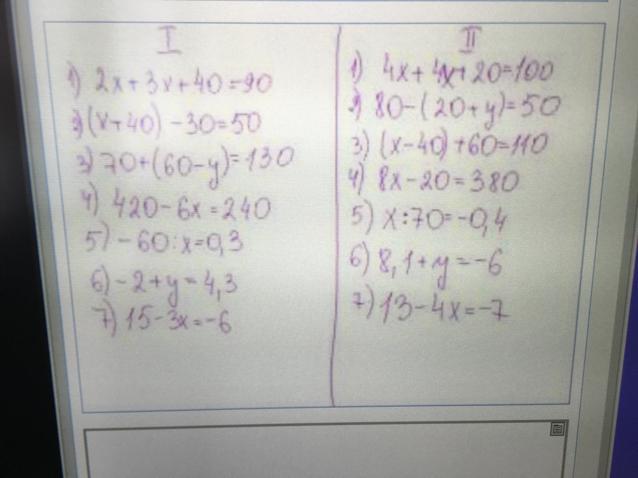 I
1) 2x+3x+40=90
2) (x+40)-30=50
3) 70+(60-y)=130
4) 420-6x=240
5) -60:x=0,3
6) -2+y=4,3
7) 15-3x=-6
II
1) 4x+4x+20=100
2) 80-(20+y)=50
3) (x-40)+60=110
4) 8x-20=380
5) x:70=-0,4
6) 8,1+y=-6
7) 13-4x=-7